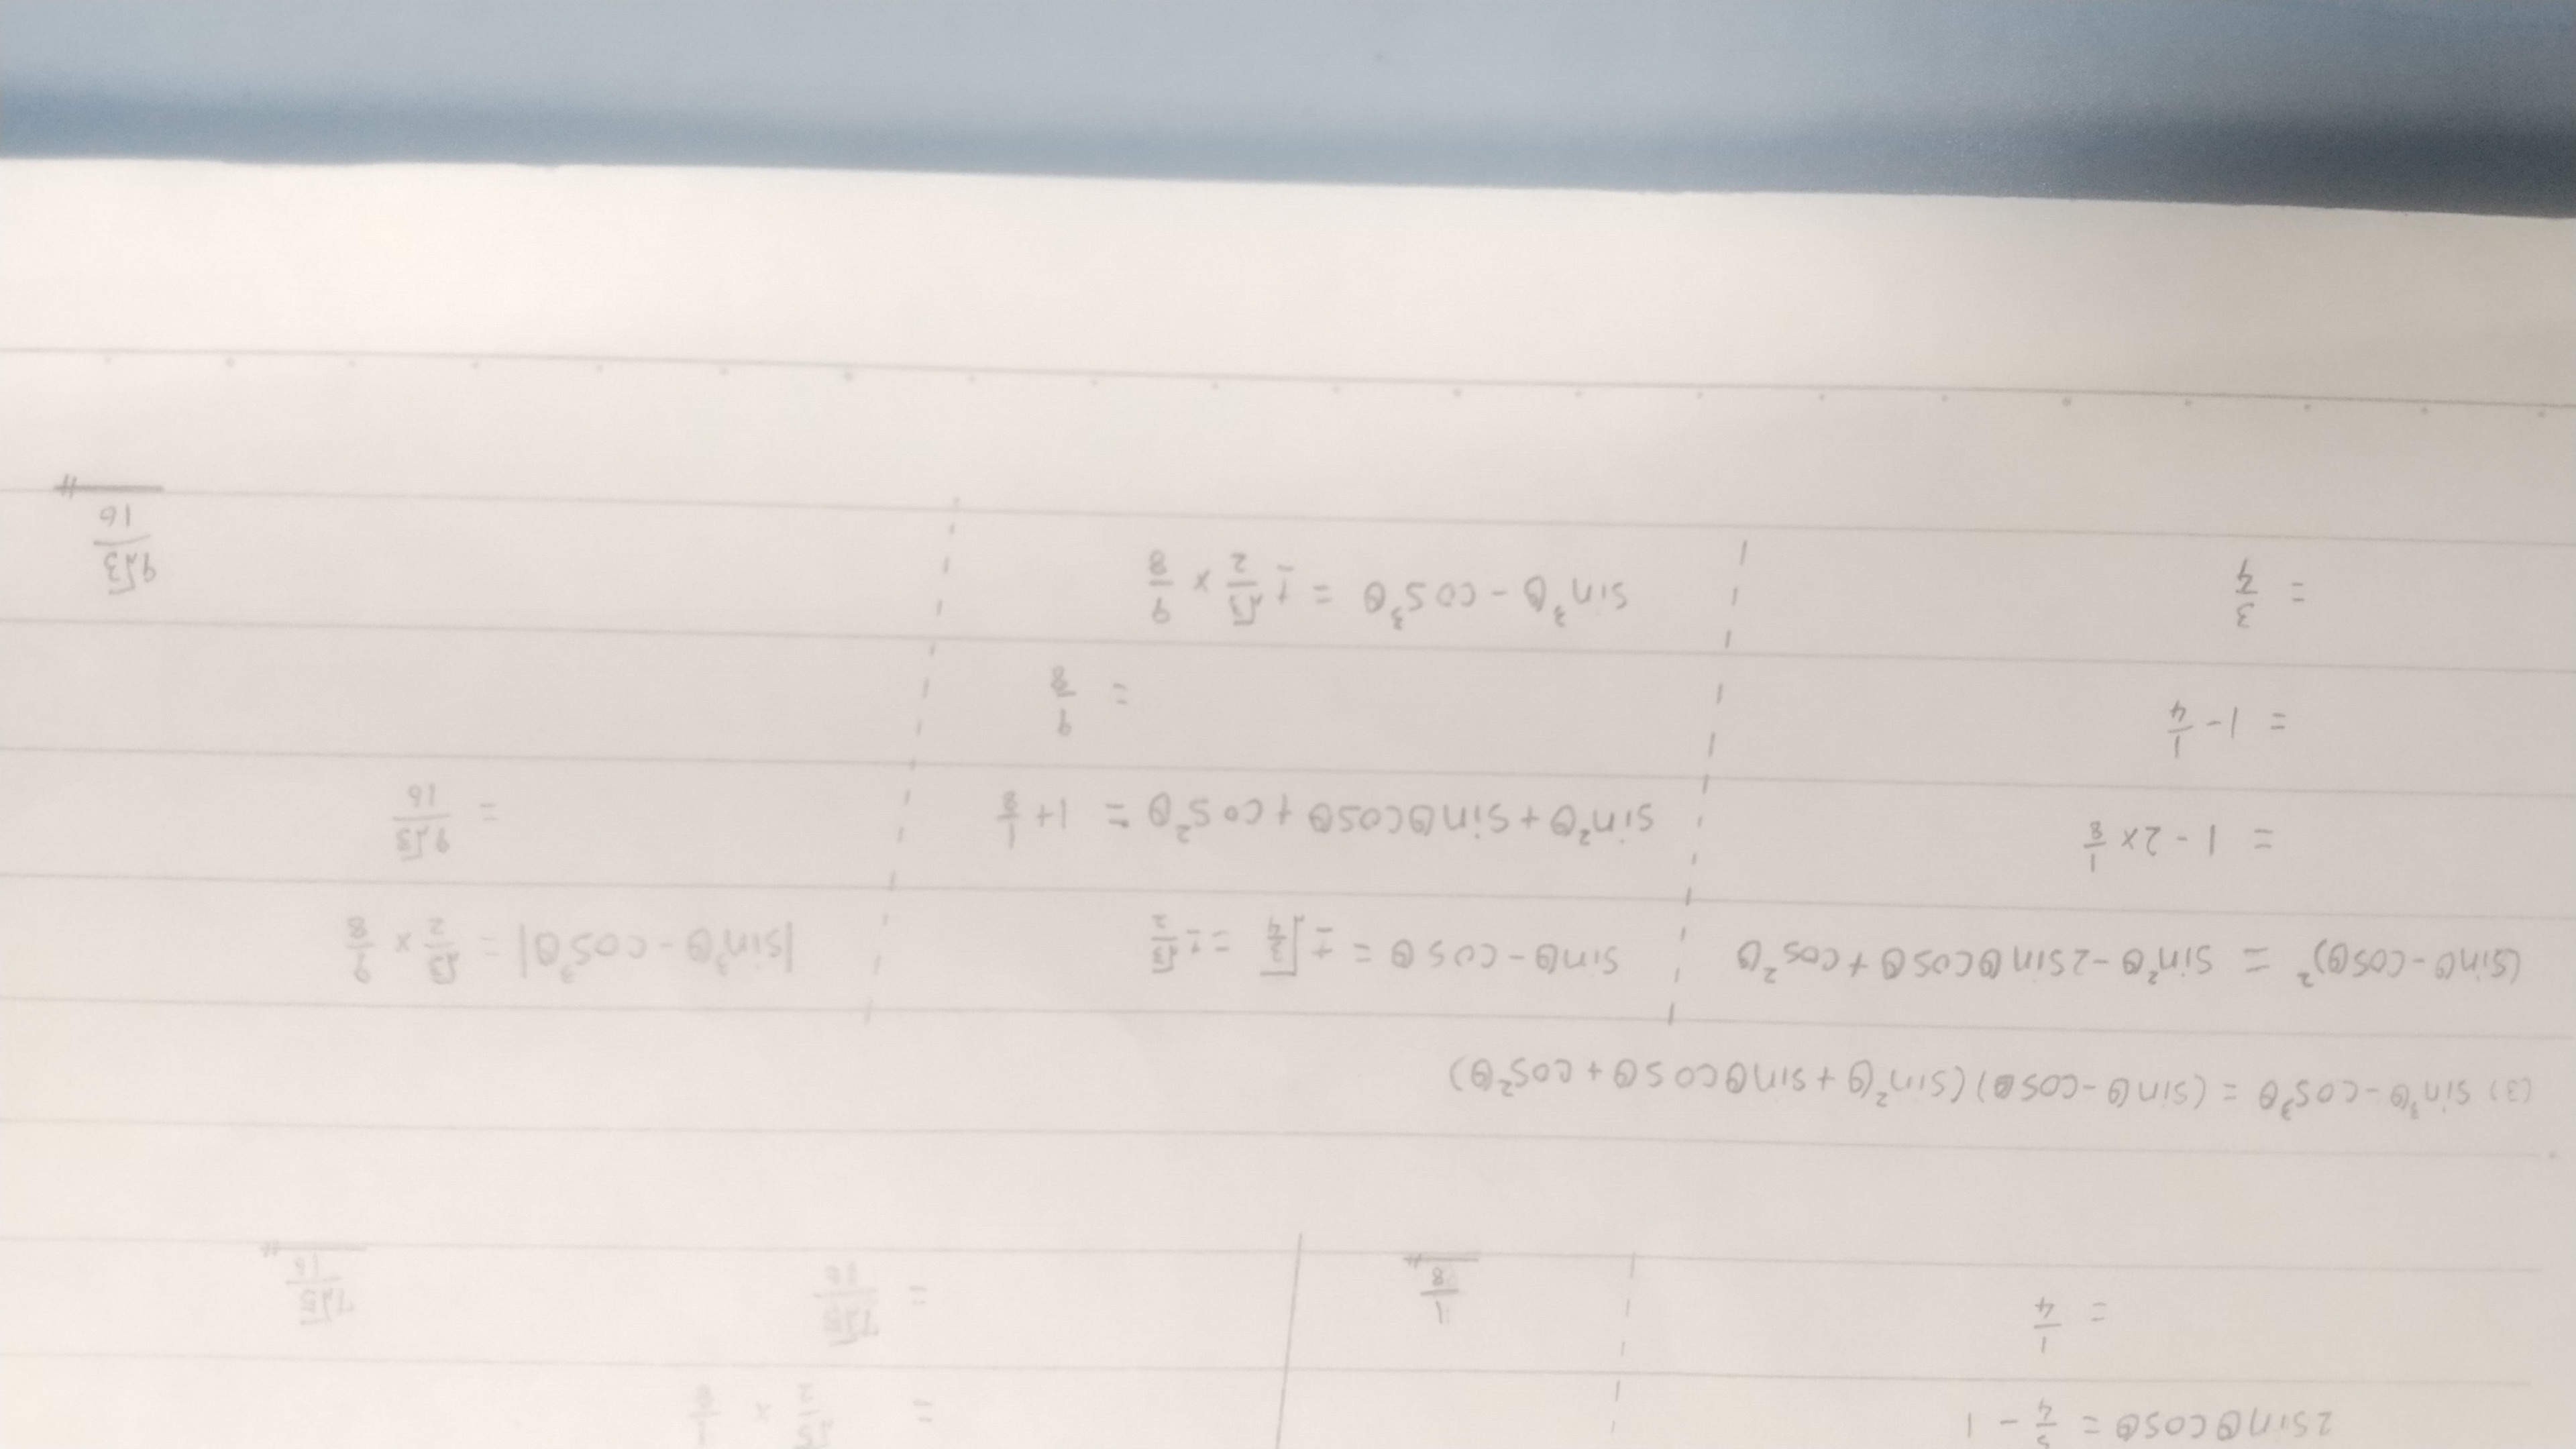 2sinθcosθ = 5/4 - 1
= 1/4
1/8
= √5/2 × 7/8
= 7√5/16
7√5/16
(3) sin³θ - cos³θ = (sinθ - cosθ)(sin²θ + sinθcosθ + cos²θ)
(sinθ - cosθ)² = sin²θ - 2sinθcosθ + cos²θ
= 1 - 2×1/8
= 1 - 1/4
= 3/4
sinθ - cosθ = ±√3/4 = ±√3/2
sin²θ + sinθcosθ + cos²θ = 1 + 1/8
= 9/8
sin³θ - cos³θ = ±√3/2 × 9/8
|sin³θ - cos³θ| = √3/2 × 9/8
= 9√3/16
9√3/16